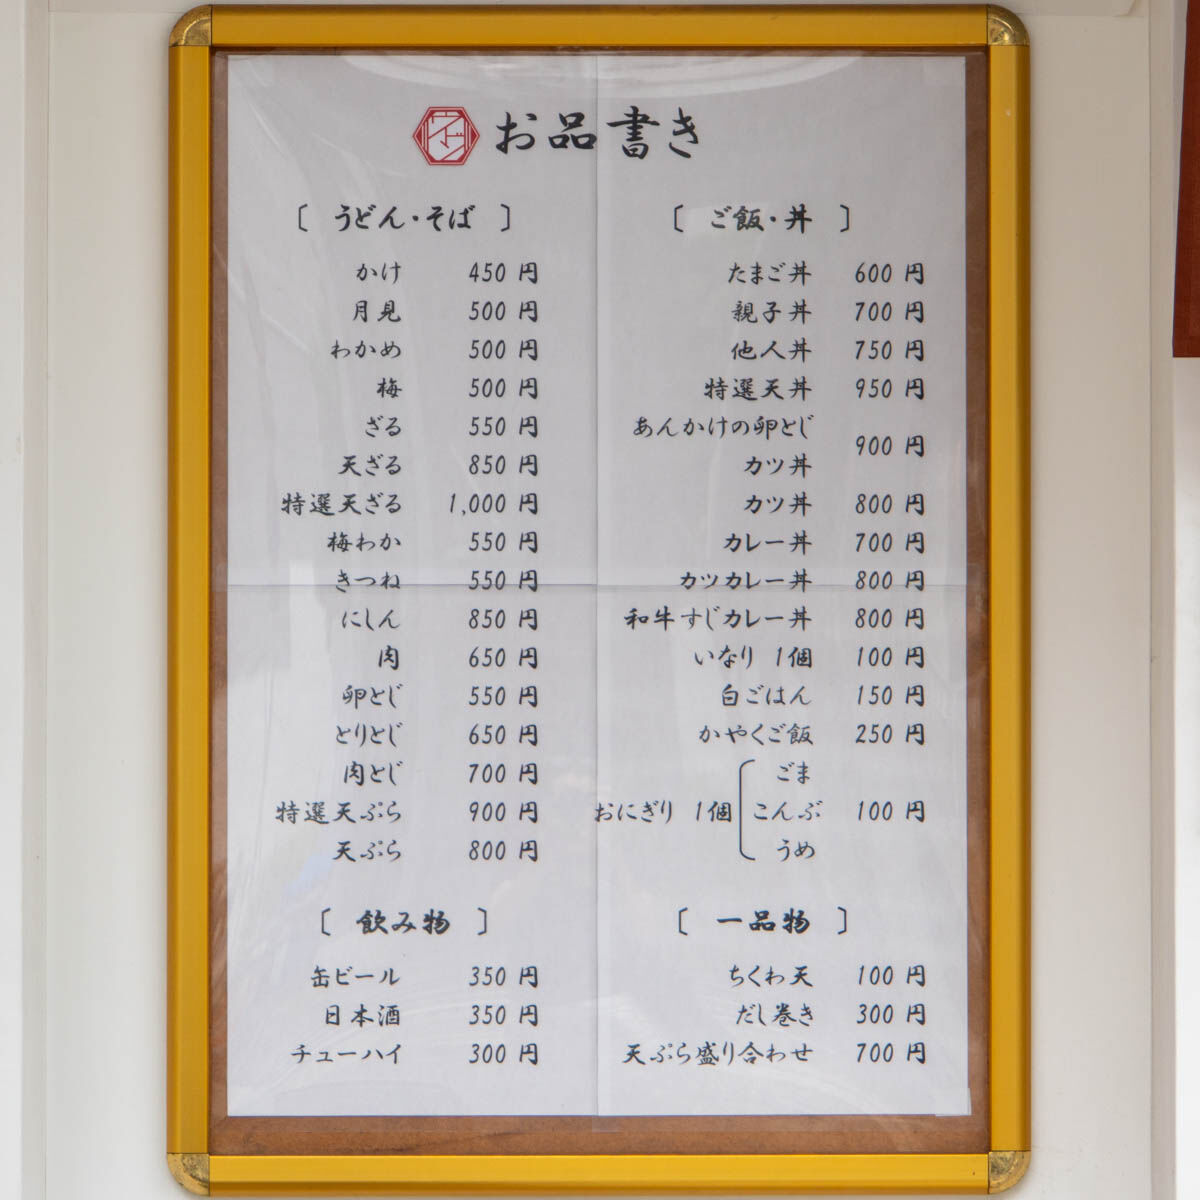 お品書き
〔 うどん・そば 〕
かけ 450円
月見 500円
わかめ 500円
梅 500円
ざる 550円
天ざる 850円
特選天ざる 1,000円
梅わか 550円
きつね 550円
にしん 850円
肉 650円
卵とじ 550円
とりとじ 650円
肉とじ 700円
特選天ぷら 900円
天ぷら 800円
〔 飲み物 〕
缶ビール 350円
日本酒 350円
チューハイ 300円
〔 ご飯・丼 〕
たまご丼 600円
親子丼 700円
他人丼 750円
特選天丼 950円
あんかけの卵とじ
カツ丼 900円
カツ丼 800円
カレー丼 700円
カツカレー丼 800円
和牛すじカレー丼 800円
いなり 1個 100円
白ごはん 150円
かやくご飯 250円
ごま
おにぎり 1個 こんぶ 100円
うめ
〔 一品物 〕
ちくわ天 100円
だし巻き 300円
天ぷら盛り合わせ 700円